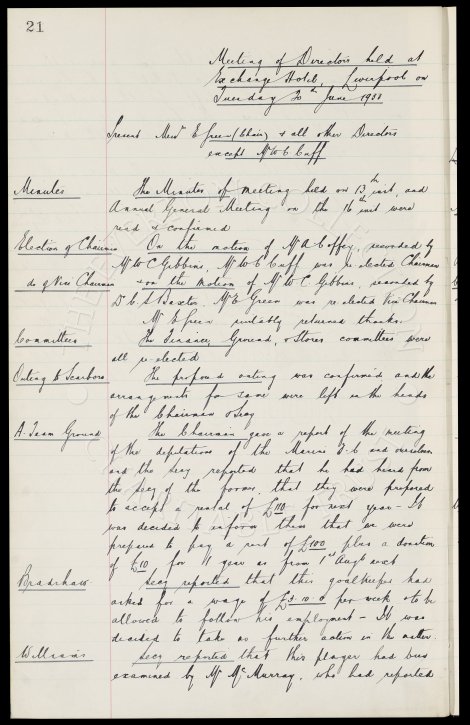 21
Meeting of Directors held at
Exchange Hotel, Liverpool on
Tuesday 20th June 1933
Present Messrs E Green (Chair) & all other Directors
except Mr W C Cuff
Minutes The Minutes of meeting held on 13th inst, and
Annual General Meeting on the 16th inst were
read & confirmed
Election of Chairman On the motion of Mr A Coffey, seconded by
Mr W C Gibbins, Mr W C Cuff was re-elected Chairman
do of Vice Chairman & on the motion of Mr W C Gibbins, seconded by
Dr C S Baxter, Mr E Green was re-elected Vice Chairman
Mr E Green suitably returned thanks.
Committees The Finance, Ground, & Stores committees were
all re-elected
Outing to Scarboro The proposed outing was confirmed and the
arrangements for same were left in the hands
of the Chairman & Secy
A. Team Ground The Chairman gave a report of the meeting
of the deputations of the Marine F.C and ourselves
and the Secy reported that he had heard from
the Secy of the former that they were prepared
to accept a rental of £110 for next year - It
was decided to inform them that we were
prepared to pay a rent of £100 plus a donation
of £10 for 1 year as from 1st Augt next
Bradshaw Secy reported that this goalkeeper had
asked for a wage of £3.10.0 per week & to be
allowed to follow his employment - It was
decided to take no further action in the matter.
Williams Secy reported that this player had been
examined by Mr McMurray, who had reported